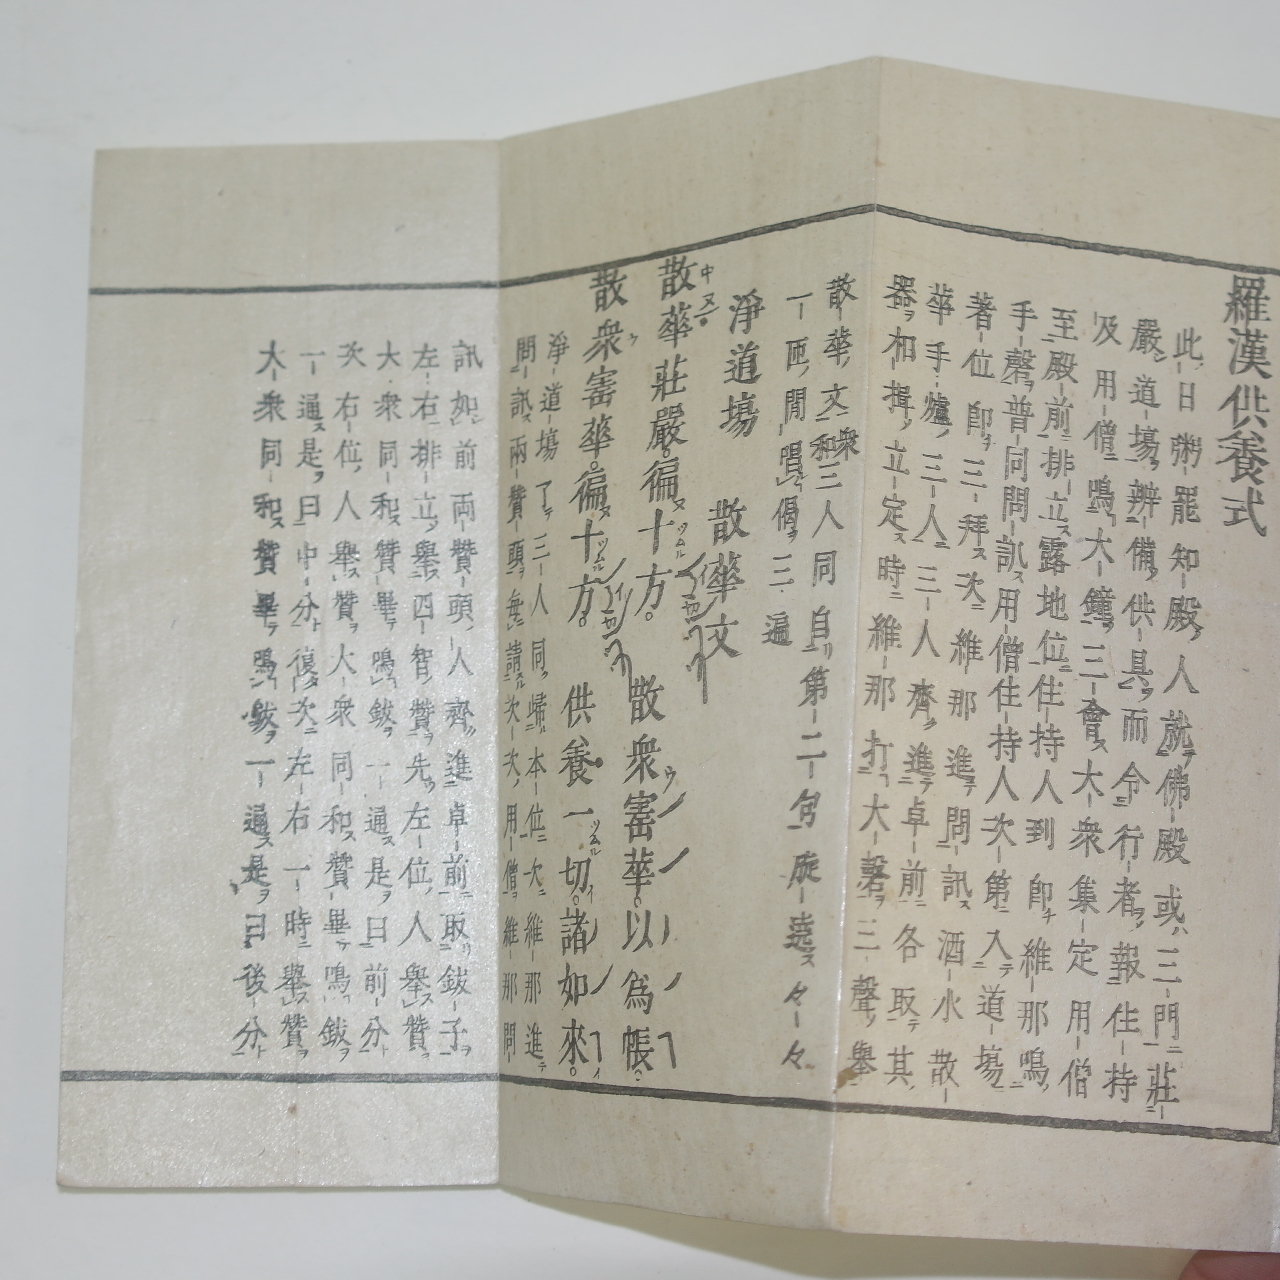 羅漢供養式
此日粥罷知殿人就佛殿或三門莊
嚴道場辨備供具而令行者報住持
及用僧鳴大鐘三會大衆集定用僧
至殿前排立露地位住持人到即維那鳴
手磬普同問訊用僧住持人次第入道場
著位即三拜次維那進問訊洒水散
華手爐三人三人齊進卓前各取其
器相揖立定時維那打大磬三聲擧
散華文衆和三人同自第二句旋遶々々
一匝間唱偈三遍
淨道場 散華文
散華莊嚴徧十方 散衆寳華以爲帳
散衆寳華徧十方 供養一切諸如來
淨道場了三人同歸本位次維那進
問訊兩贊頭無請次次用僧維那問
訊如前兩贊頭人齊進卓前取鈸子
左右排立擧四智贊先左位人擧贊
大衆同和贊畢鳴鈸一通是曰前分
次右位人擧贊大衆同和贊畢鳴鈸
一通是曰中分復次左右一時擧贊
大衆同和贊畢鳴鈸一通是曰後分